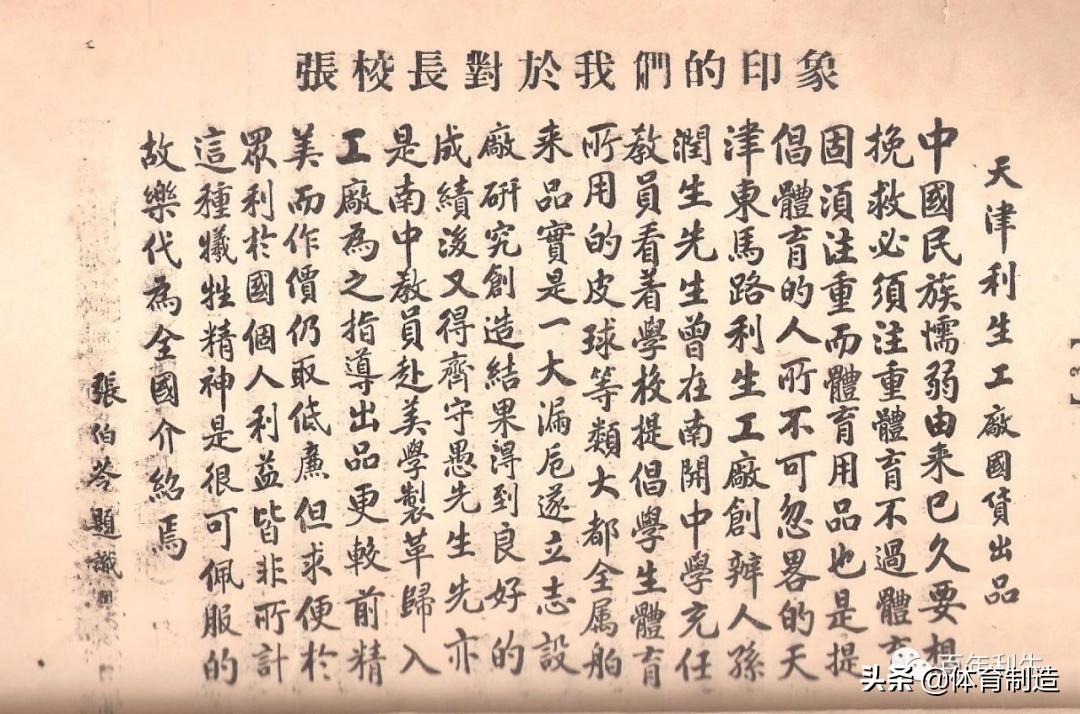 張校長對於我們的印象
天津利生工廠國貨出品
中國民族懦弱由来已久要想
挽救必須注重體育不過體育
固須注重而體育用品也是提
倡體育的人所不可忽畧的天
津東馬路利生工廠創辦人孫
潤生先生曾在南開中學充任
教員看着學校提倡學生體育
所用的皮球等類大都全属舶
来品實是一大漏卮遂立志設
廠研究創造結果淂到良好的
成績後又得齊守愚先生先亦
是南中教員赴美學製革歸入
工廠為之指導出品更較前精
美而作價仍取低廉但求便於
眾利於國個人利益皆非所計
這種犧牲精神是很可佩服的
故樂代為全國介紹焉
張伯苓題識
【3】
百年利生
头条 @体育制造